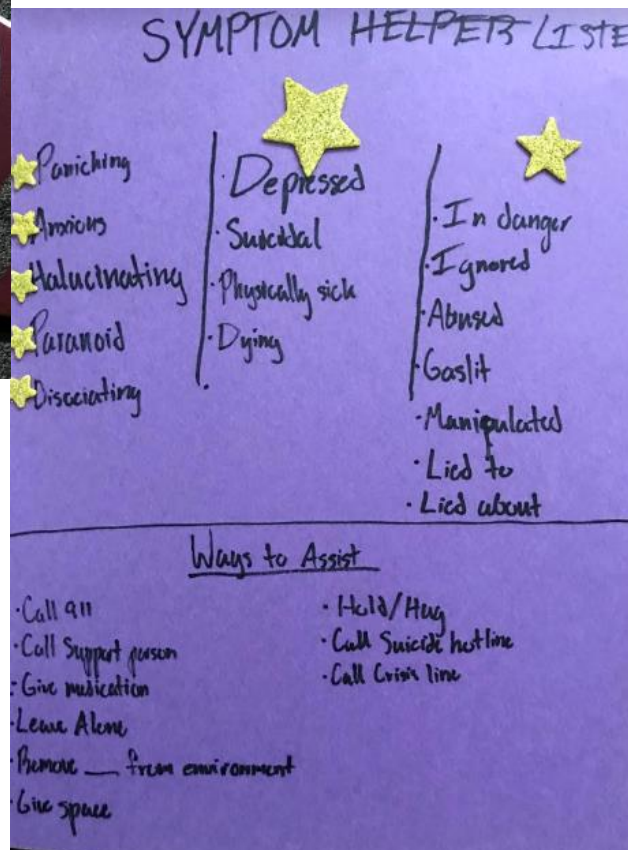 SYMPTOM HELPER LISTE
Panicking
Anxious
Halucinating
Paranoid
Disociating
· Depressed
· Suicidal
· Physically sick
· Dying
·
· In danger
· Ignored
· Abused
· Gaslit
· Manipulated
· Lied to
· Lied about
Ways to Assist
· Call 911
· Call Support person
· Give medication
· Leave Alone
· Remove __ from environment
· Give space
· Hold/Hug
· Call Suicide hotline
· Call Crisis line